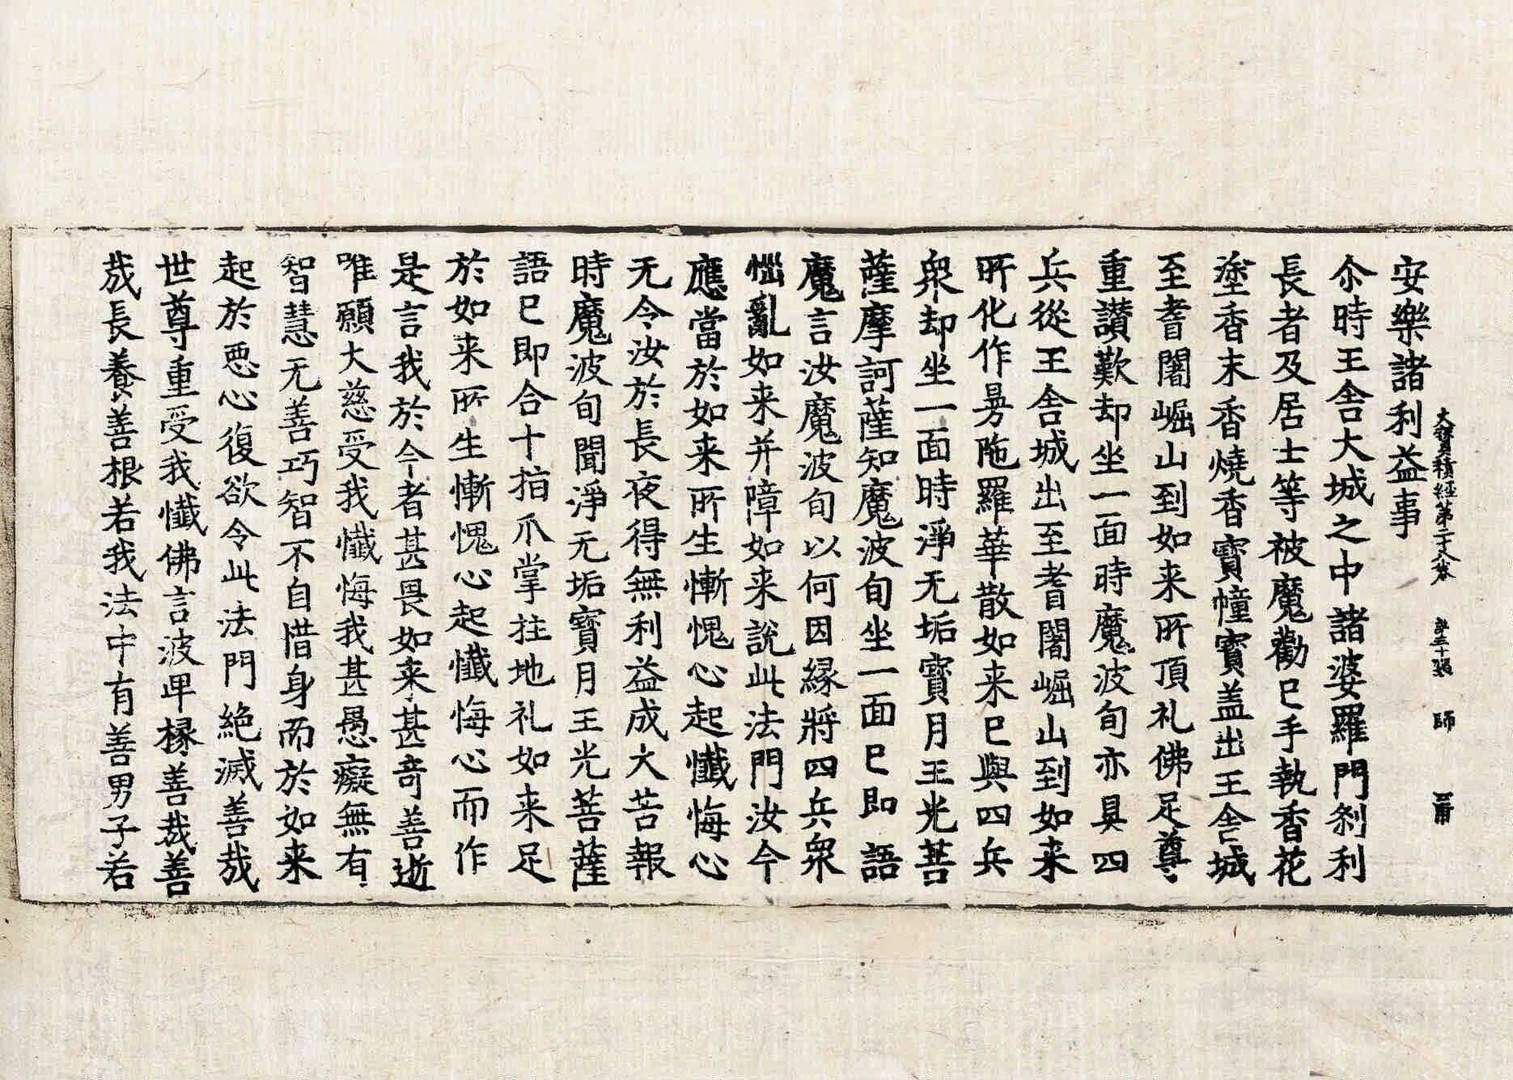 安樂諸利益事
大寶積經第二十八卷 第三十張 師
尒時王舍大城之中諸婆羅門刹利
長者及居士等被魔勸已手執香花
塗香末香燒香寶幢寶盖出王舍城
至耆闍崛山到如来所頂礼佛足尊
重讃歎却坐一面時魔波旬亦具四
兵從王舍城出至耆闍崛山到如来
所化作曼陁羅華散如来已與四兵
衆却坐一面時淨无垢寶月王光菩
薩摩訶薩知魔波旬坐一面已即語
魔言汝魔波旬以何因縁將四兵衆
惱亂如来并障如来說此法門汝今
應當於如来所生慚愧心起懺悔心
无令汝於長夜得無利益成大苦報
時魔波旬聞淨无垢寶月王光菩薩
語已即合十指爪掌拄地礼如来足
於如来所生慚愧心起懺悔心而作
是言我於今者甚畏如来甚奇善逝
唯願大慈受我懺悔我甚愚癡無有
智慧无善巧智不自惜身而於如来
起於惡心復欲令此法門絶滅善哉
世尊重受我懺佛言波卑掾善哉善
哉長養善根若我法中有善男子若